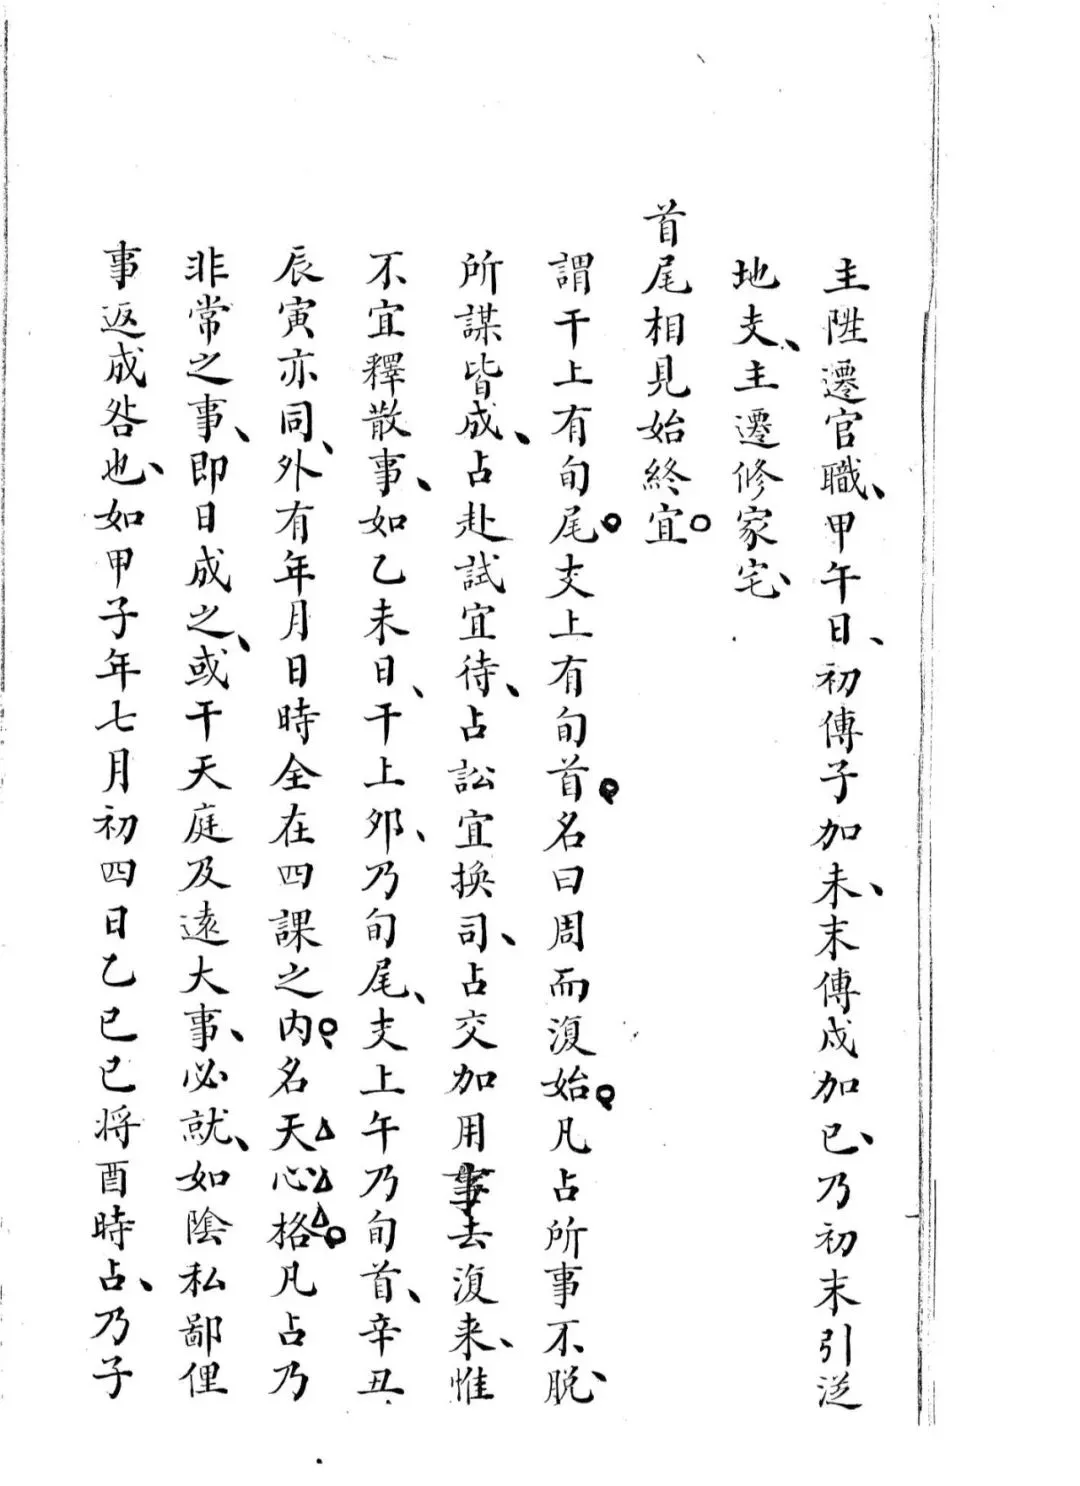 主陞遷官職、甲午日、初傳子加未、末傳戌加巳、乃初末引從
地支、主遷修家宅、
首尾相見始終宜○
謂干上有旬尾支上有旬首名曰周而復始凡占所事不脫、
所謀皆成、占赴試宜待、占訟宜換司、占交加用事去復来、惟
不宜釋散事、如乙未日、干上夘、乃旬尾、支上午乃旬首、辛丑
辰寅亦同、外有年月日時全在四課之内名天心格凡占乃
非常之事、即日成之、或干天庭及遠大事、必就、如陰私鄙俚
事返成咎也、如甲子年七月初四日乙巳巳将酉時占、乃子